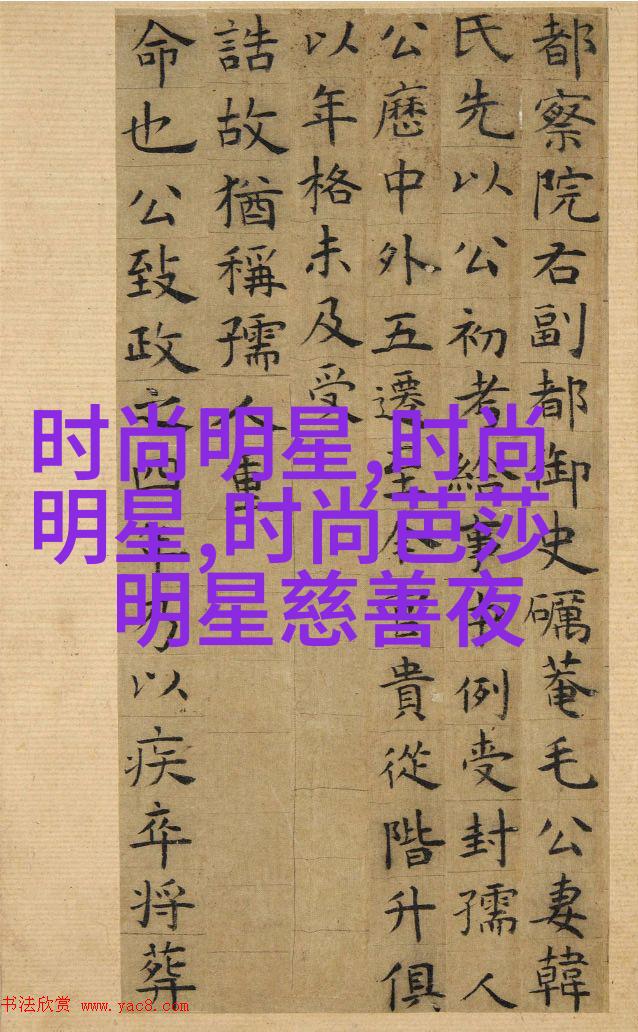 都察院右副都御史礪菴毛公妻韓
氏先以公初考給事中例受封孺人
公歷中外五遷至貴從階升俱
以年格未及受
誥故猶稱孺人重
命也公致政之四年乃以疾卒将葬
时尚明星,时尚
明星,时尚芭莎
明星慈善夜
书法欣赏 www.yac8.com